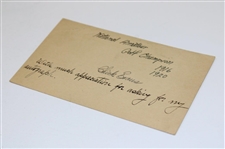 National Amateur
Golf Champion
1916
1920
Chick Evans
With much appreciation for asking for my
autograph.